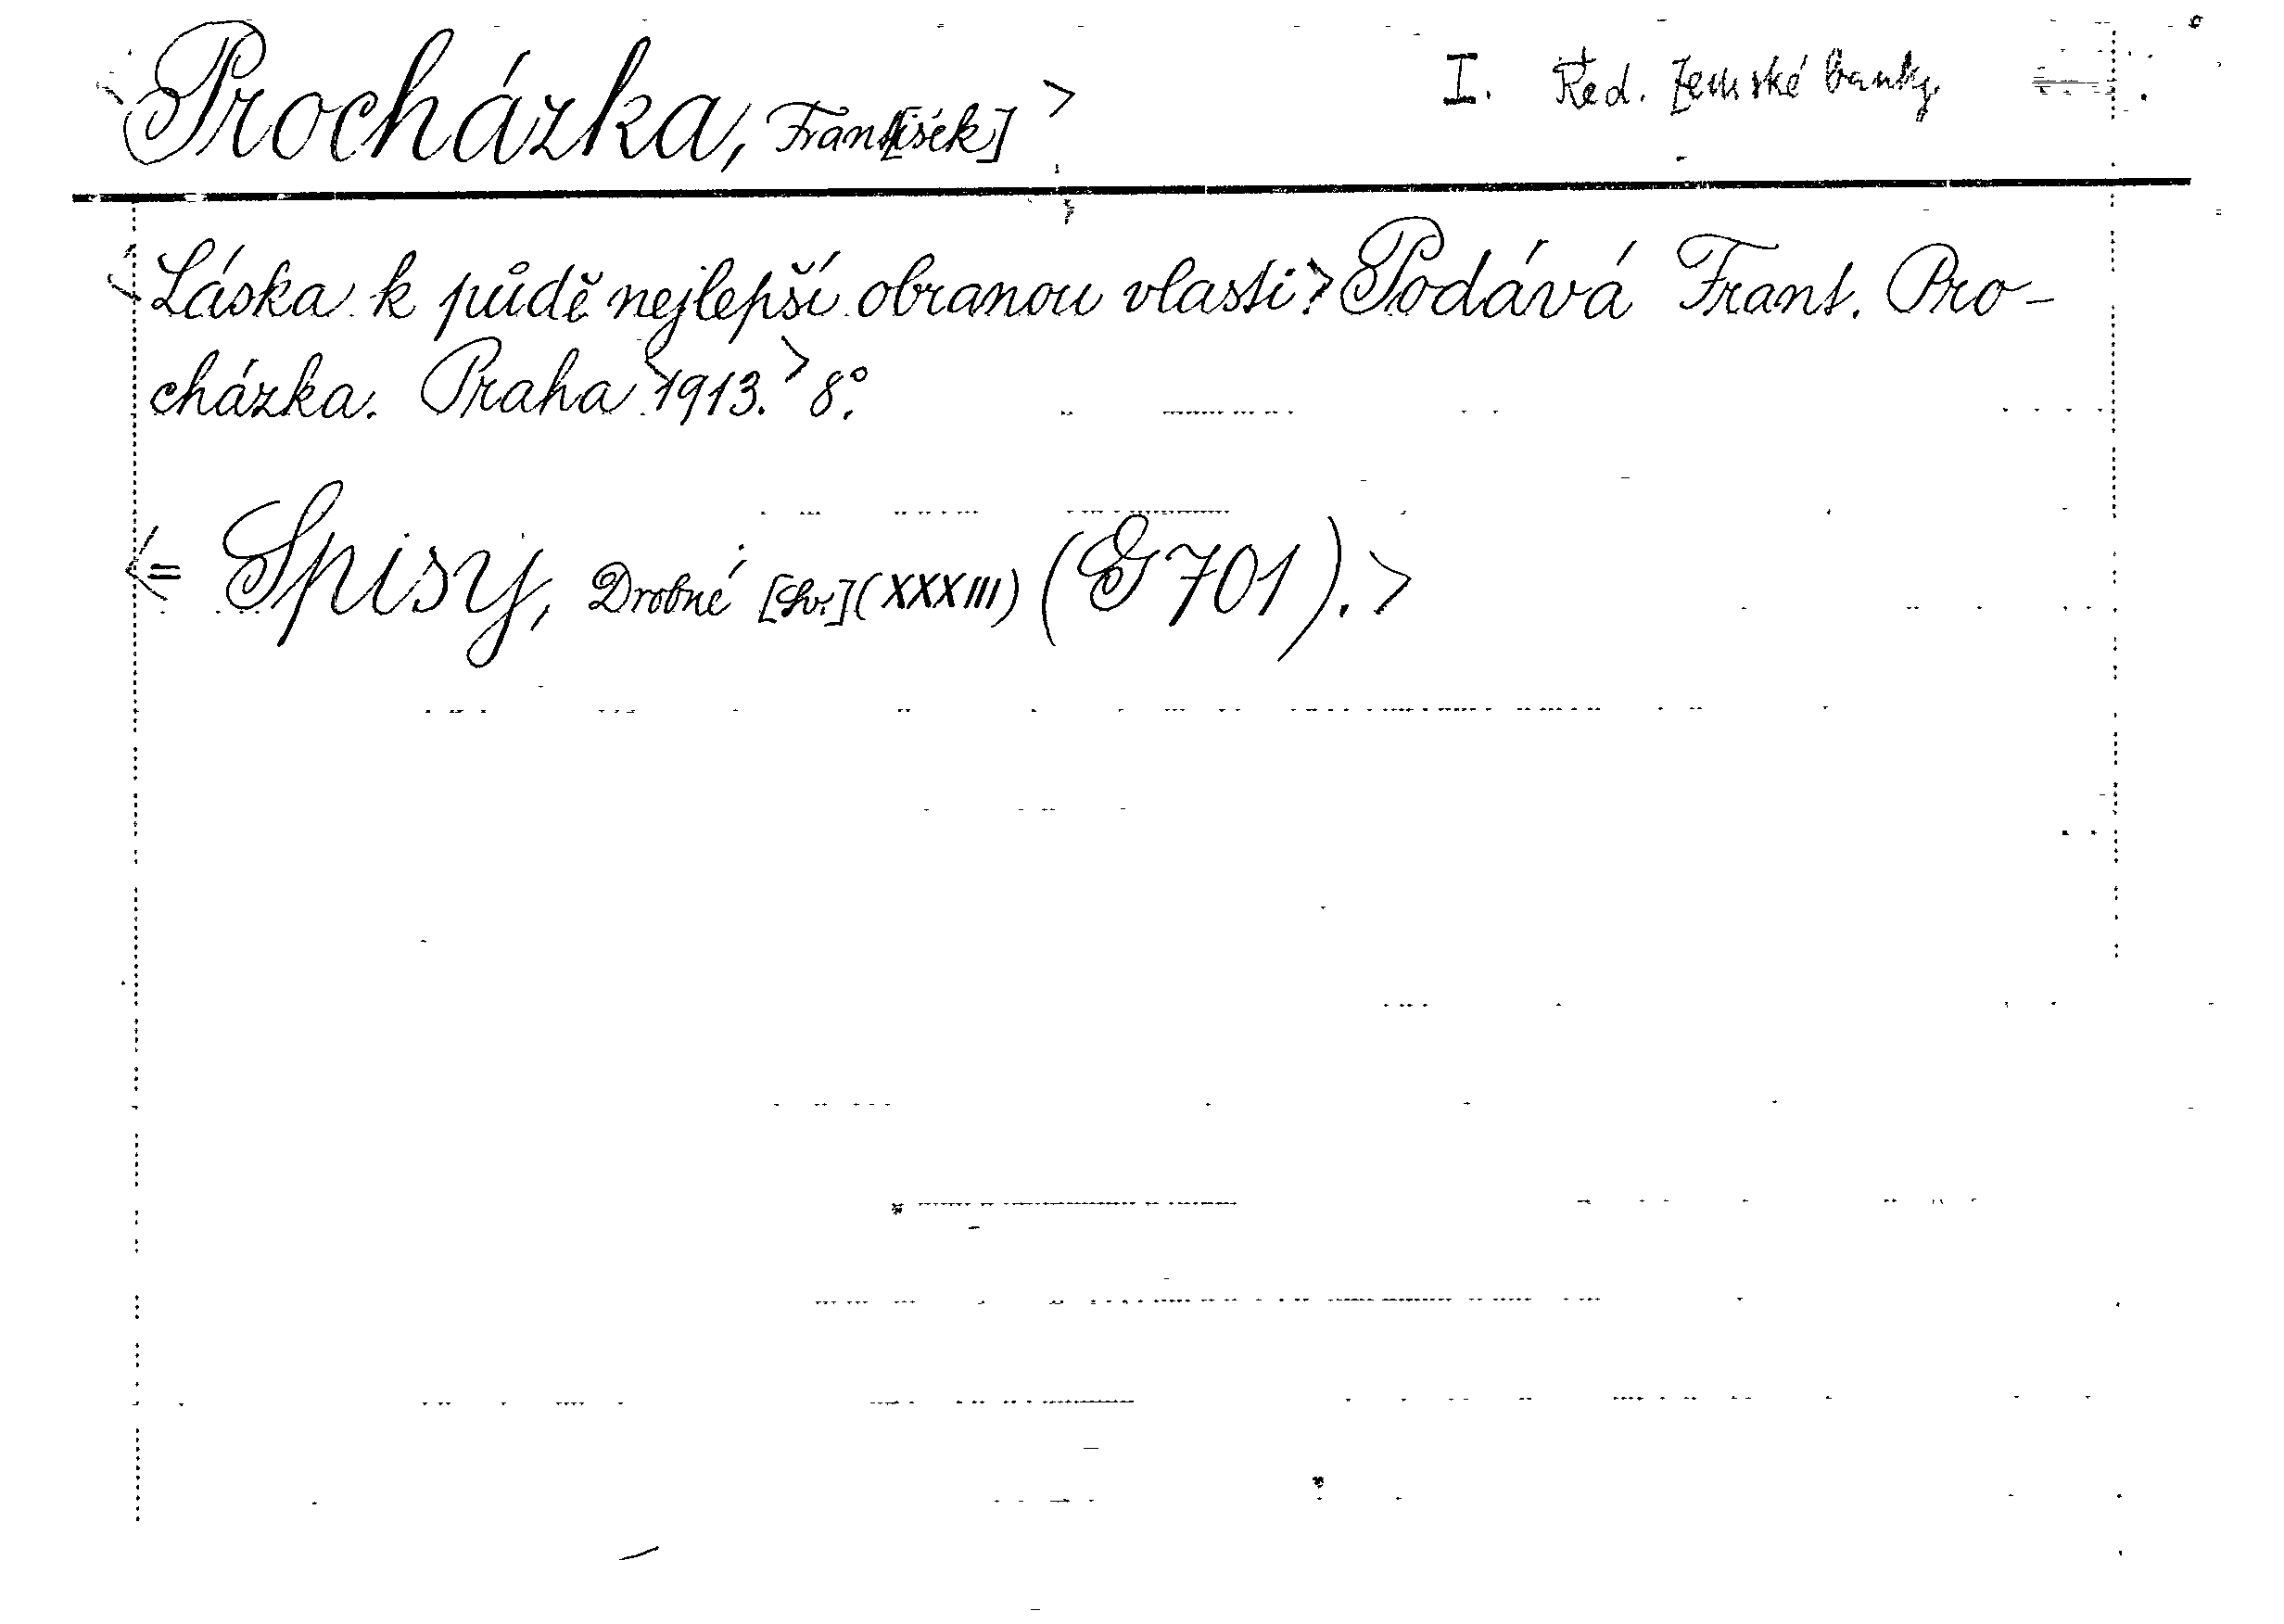 <Procházka, Frant[išek]> I. Řed. Zemské banky.
<Láska k půdě nejlepší obranou vlasti> Podává Frant. Pro-
cházka. Praha <1913.> 8°.
<= Spisy, Drobné [Sv.] (XXXIII) (G 701).>